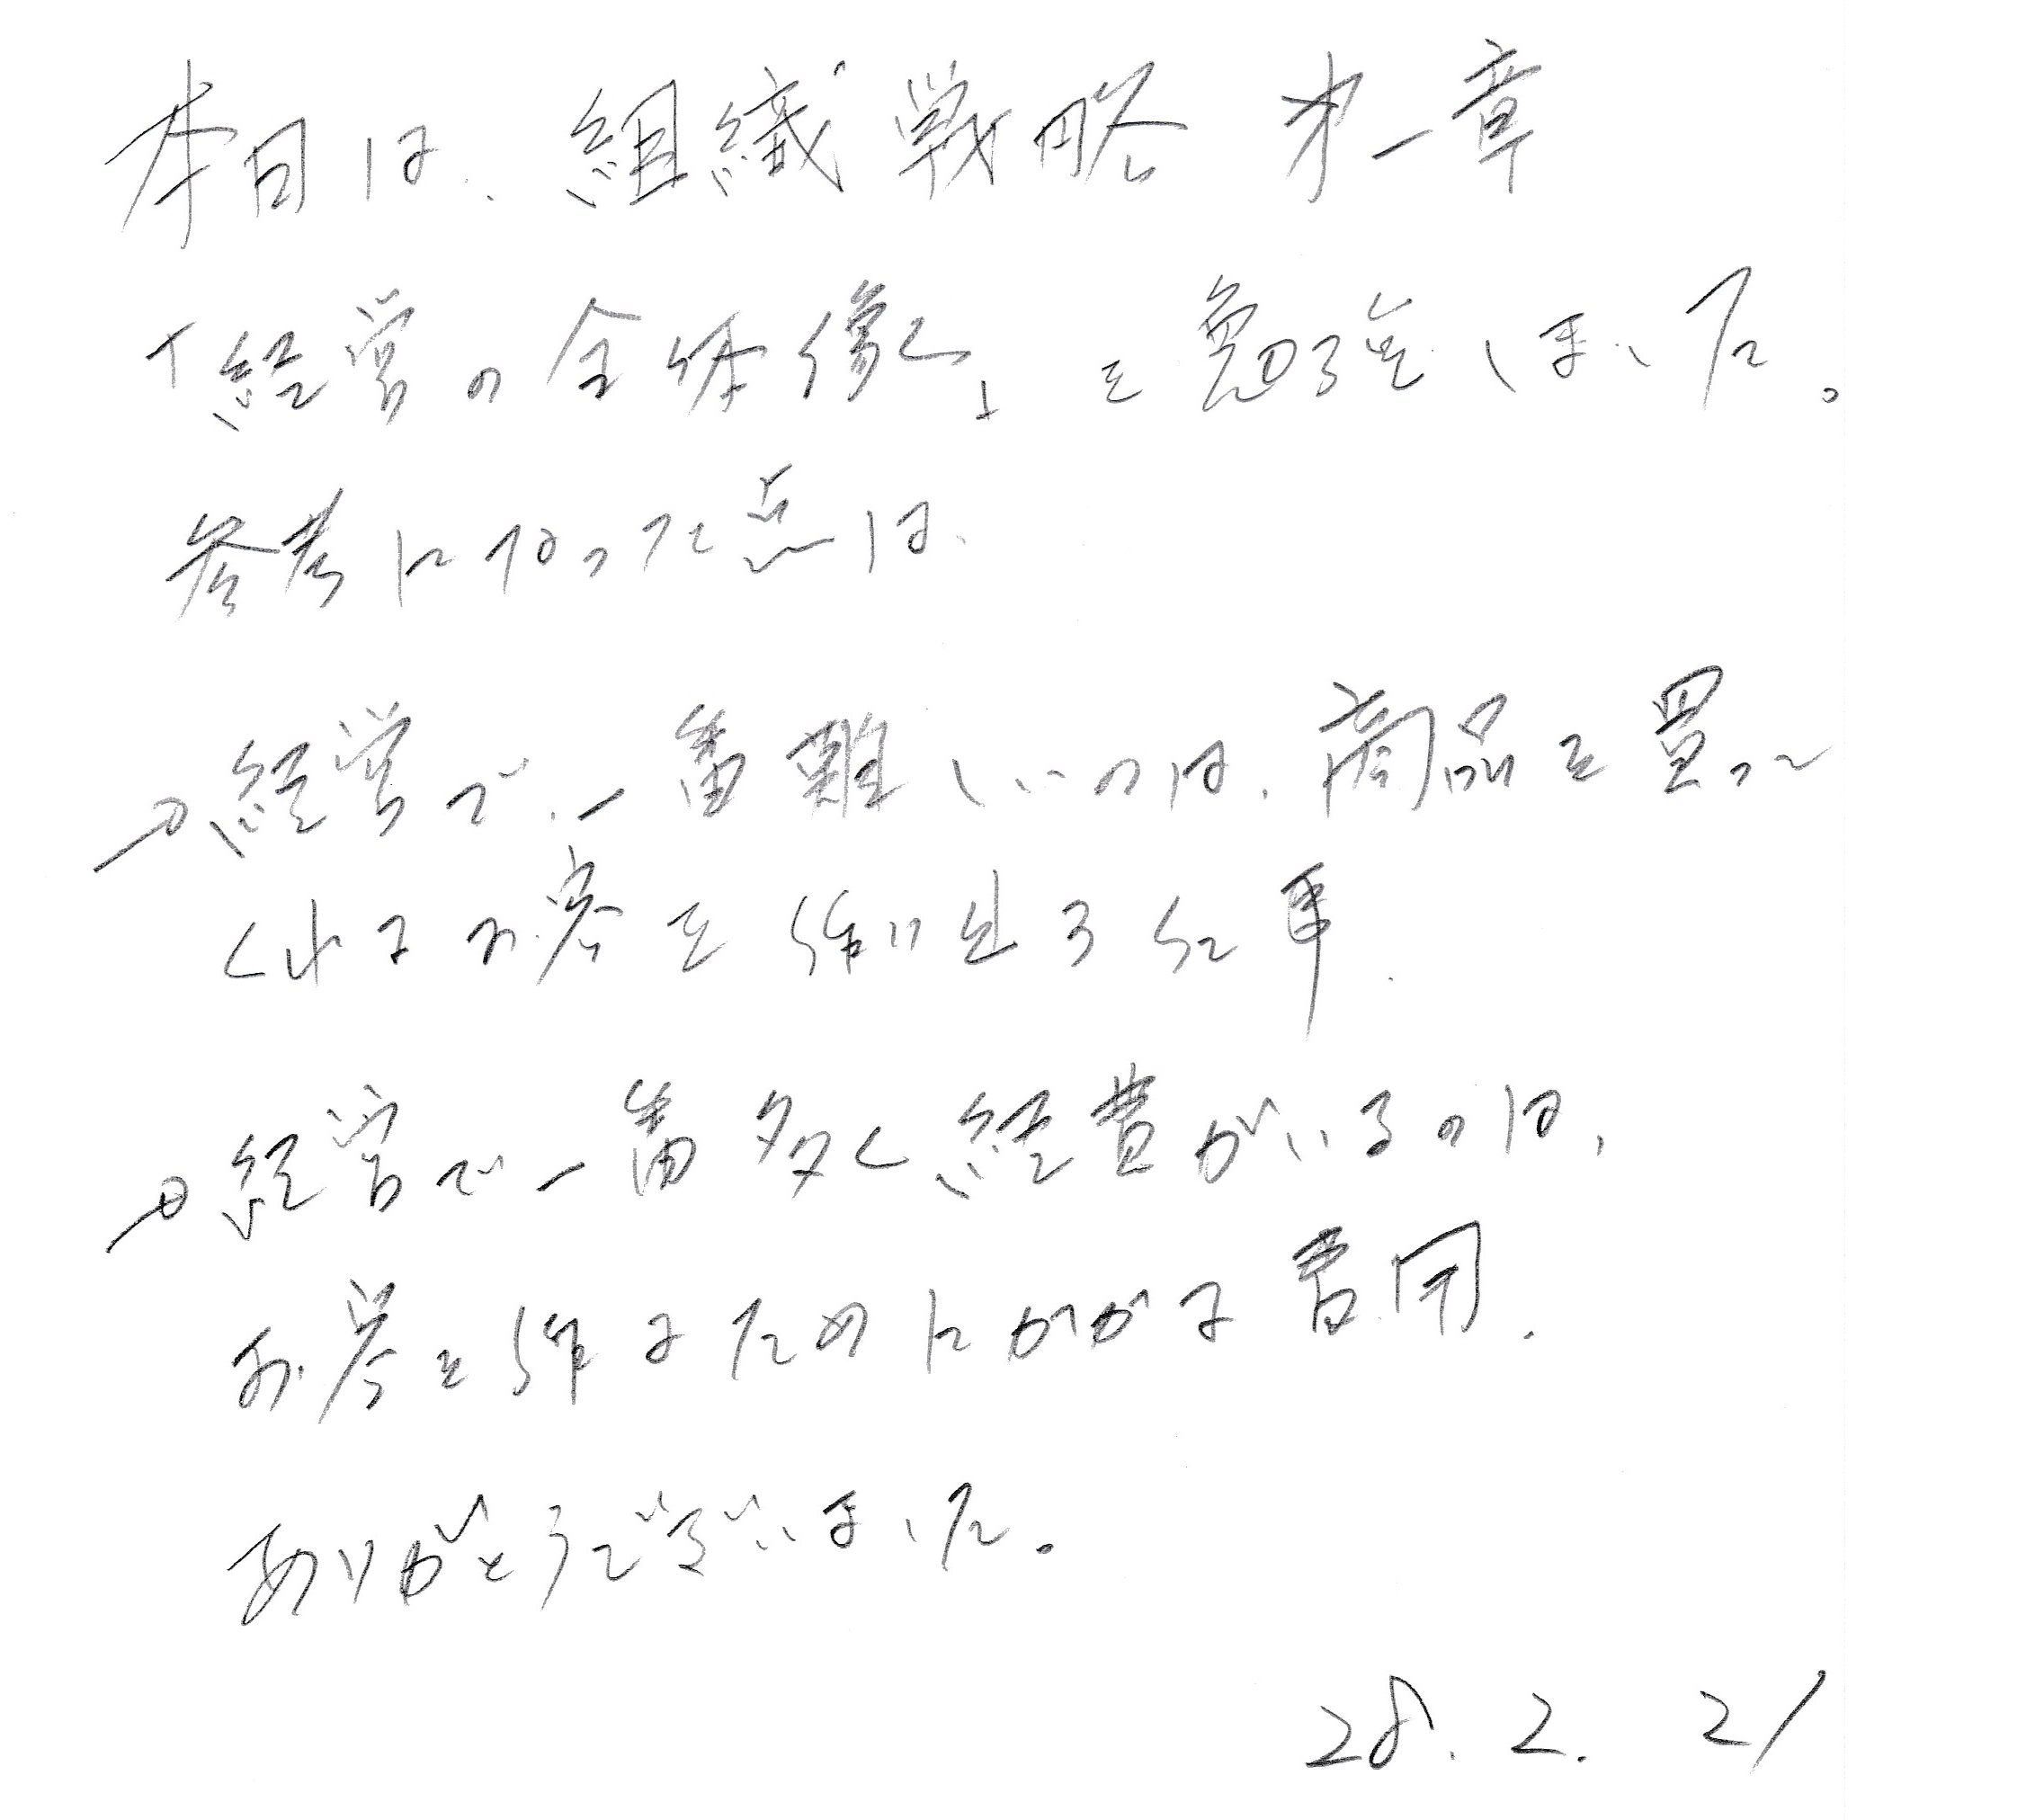 本日は、組織戦略 第一章
「経営の全体像」を勉強しました。
参考になった点は、
→経営で、一番難しいのは、商品を買って
くれるお客を作り出スる事.
→経営で一番多く経費がいるのは、
お客を作るためにかかる費用.
ありがとうございました。
28. 2. 21